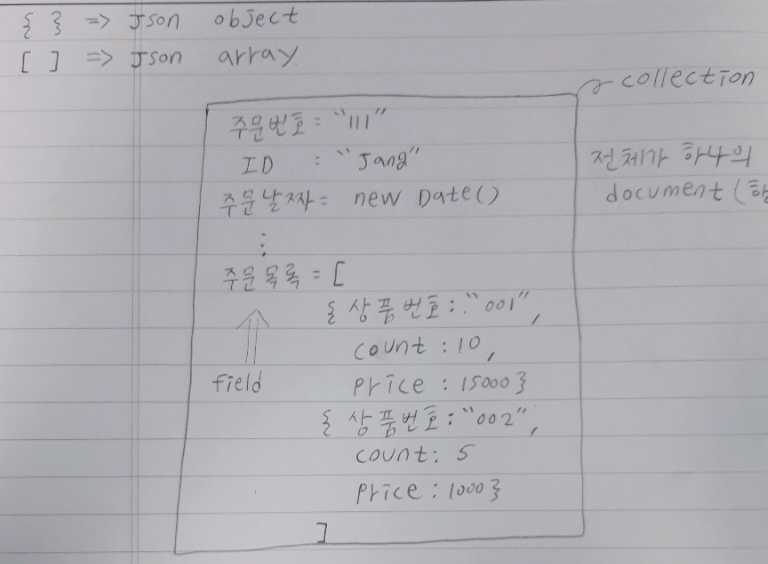 { } => Json object
[ ] => Json array
collection
주문번호 : "111"
ID : "Jang"
주문날짜 = new Date()
⋮
주문목록 = [
{ 상품번호 : "001",
count : 10,
price : 15000 }
{ 상품번호 : "002",
count : 5
price : 1000 }
]
field
전체가 하나의
document (행